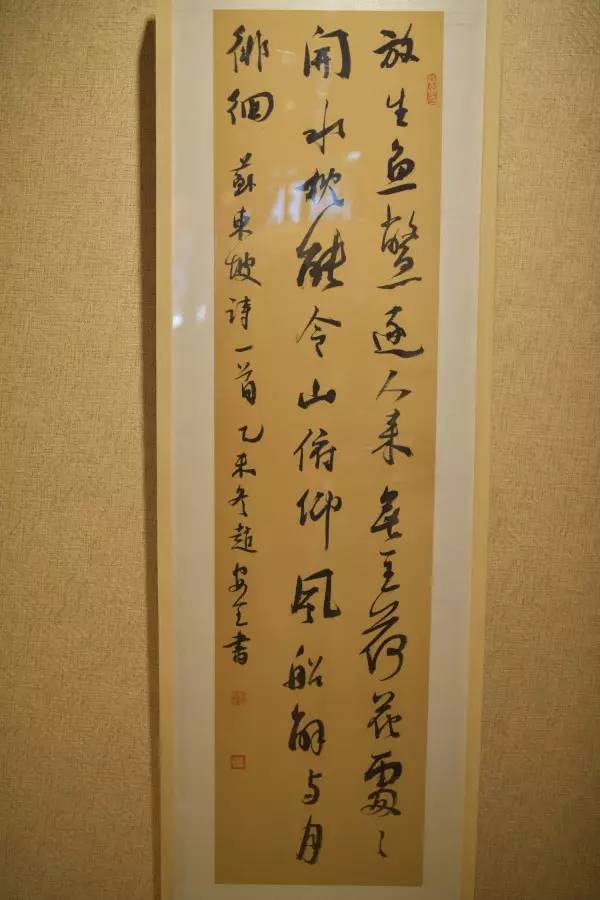 放生魚鱉逐人来無主荷花處〻
開水枕能令山俯仰風船解与月
徘徊 蘇東坡诗一首 乙未冬趙書